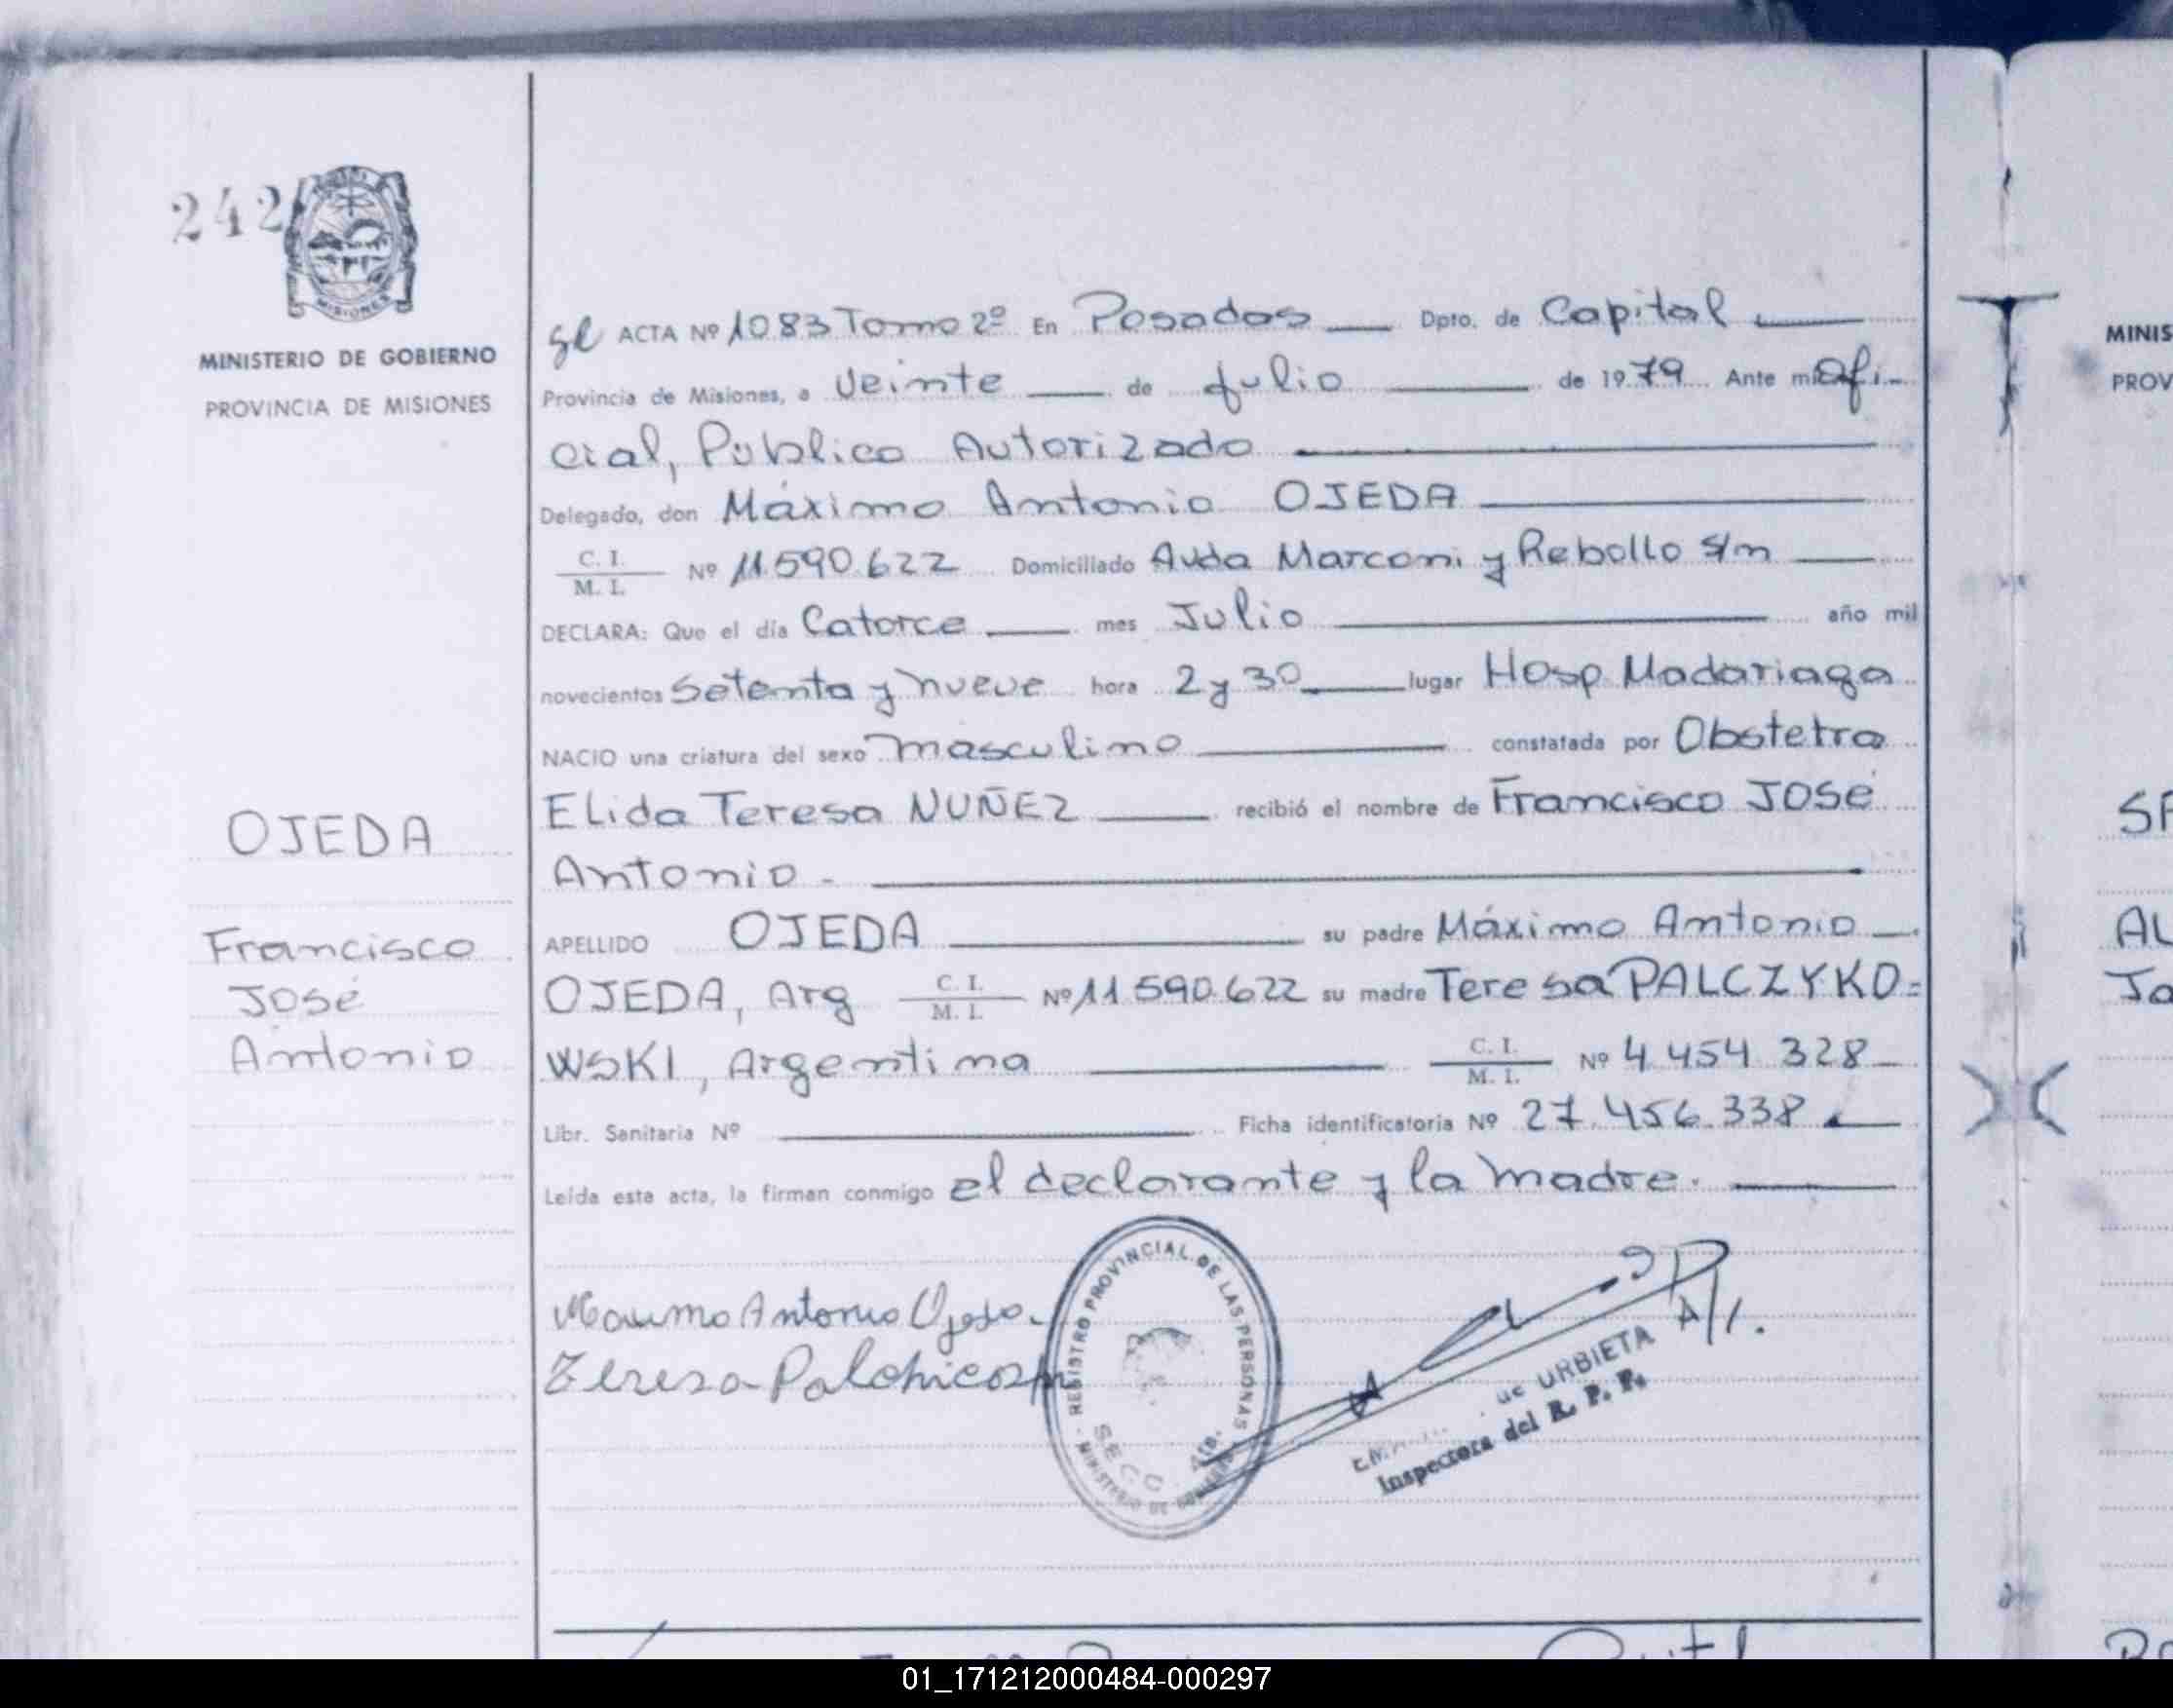 242
MISIONES
MINISTERIO DE GOBIERNO
PROVINCIA DE MISIONES
OJEDA
Francisco
José
Antonio
ACTA Nº 1083 Tomo 2º En Posadas Dpto. de Capital
Provincia de Misiones, a Veinte de Julio de 1979 Ante mi Ofi-
cial, Publico Autorizado
Delegado, don Máximo Antonio OJEDA
C. I.
M. I. Nº 11.590.622 Domiciliado Avda Marconi y Rebollo s/n
DECLARA: Que el día Catorce mes Julio año mil
novecientos Setenta y nueve hora 2 y 30 lugar Hosp Madariaga
NACIO una criatura del sexo masculino constatada por Obstetra
Elida Teresa NUÑEZ recibió el nombre de Francisco José
Antonio -
APELLIDO OJEDA su padre Máximo Antonio
OJEDA, Arg C. I. M. I. Nº 11.590.622 su madre Teresa PALCZYKO=
WSKI, Argentina C. I. M. I. Nº 4.454.328
Libr. Sanitaria Nº Ficha identificatoria Nº 27.456.338
Leída esta acta, la firman conmigo el declarante y la madre.
Maximo Antonio Ojeda
Teresa
REGISTRO PROVINCIAL DE LAS PERSONAS
MINISTERIO DE GOBIERNO
SECC. 4ta.
de URBIETA
Inspectora del R. P. P.
MINIS
PROV
SP
AL
Jo
01_171212000484-000297